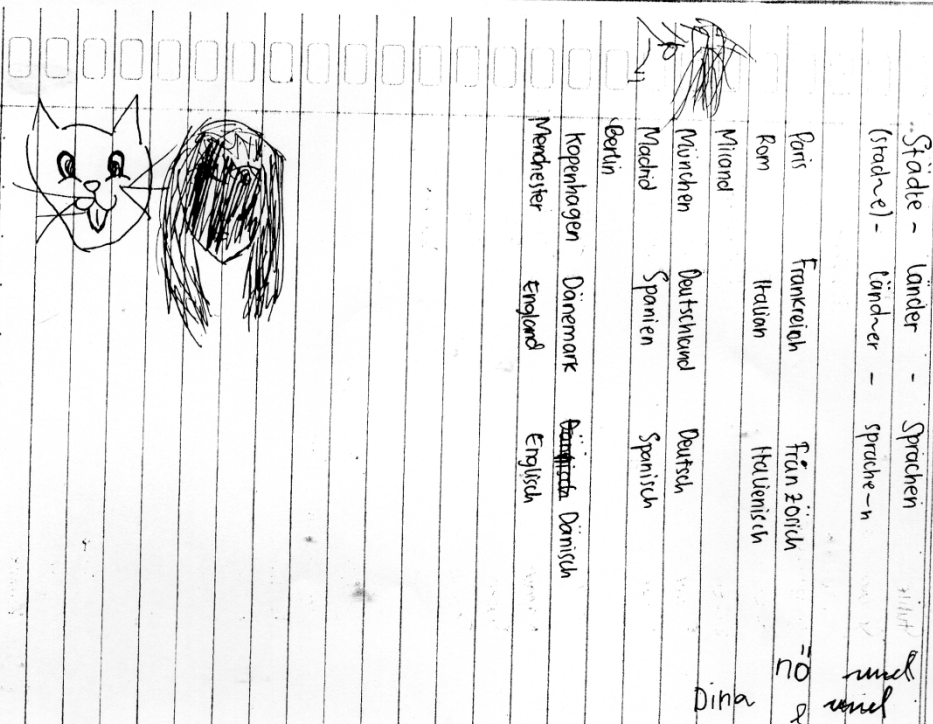 Städte - Länder - Sprachen
(städ~e) - länd~er - sprache~n
Paris Frankreich Französich
Rom Italian Italienisch
Mirand
München Deutschland Deutsch
Madrid Spanien Spanisch
Berlin
Kopenhagen Dänemark Dänisch
Menchester England Englisch
nö
Dina